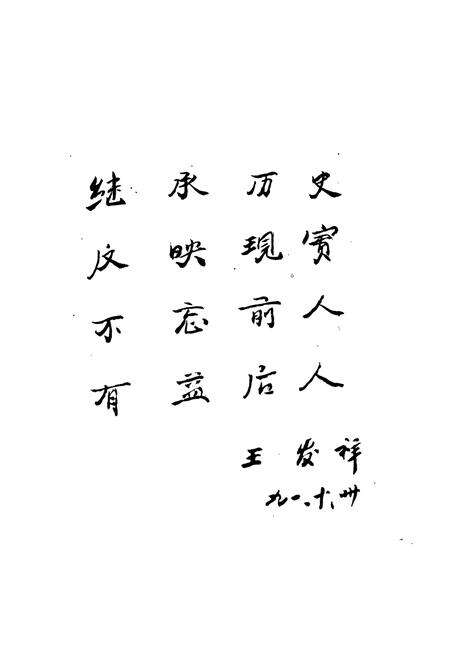 继承历史
反映现实
不忘前人
有益后人
王发祥
九一.十.卅